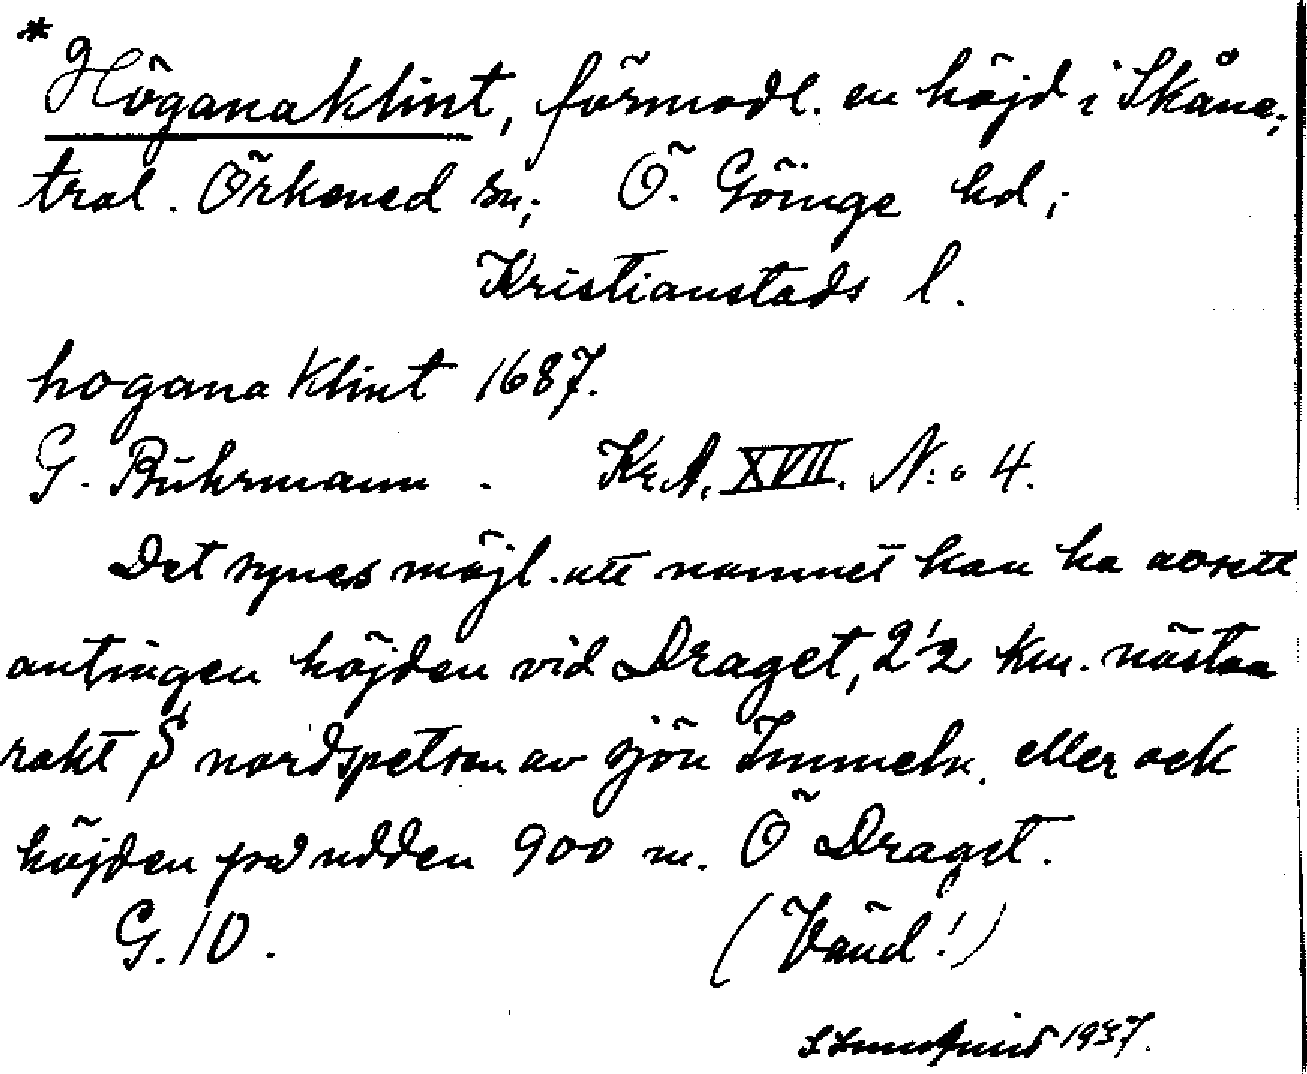 * Höganaklint, förmodl. en höjd i Skåne;
tral. Örkened sn; Ö. Göinge hd;
Kristianstads l.
hogana Klint 1687.
G. Buhrmann. Kr.A. XVII. N:o 4.
Det synes möjl. att namnet kan ha avsett
antingen höjden vid Draget, 2 1/2 km. nästan
rakt S nordspetsen av sjön Immeln. eller ock
höjden på udden 900 m. Ö Draget.
G. 10. (Vänd!)
1937.